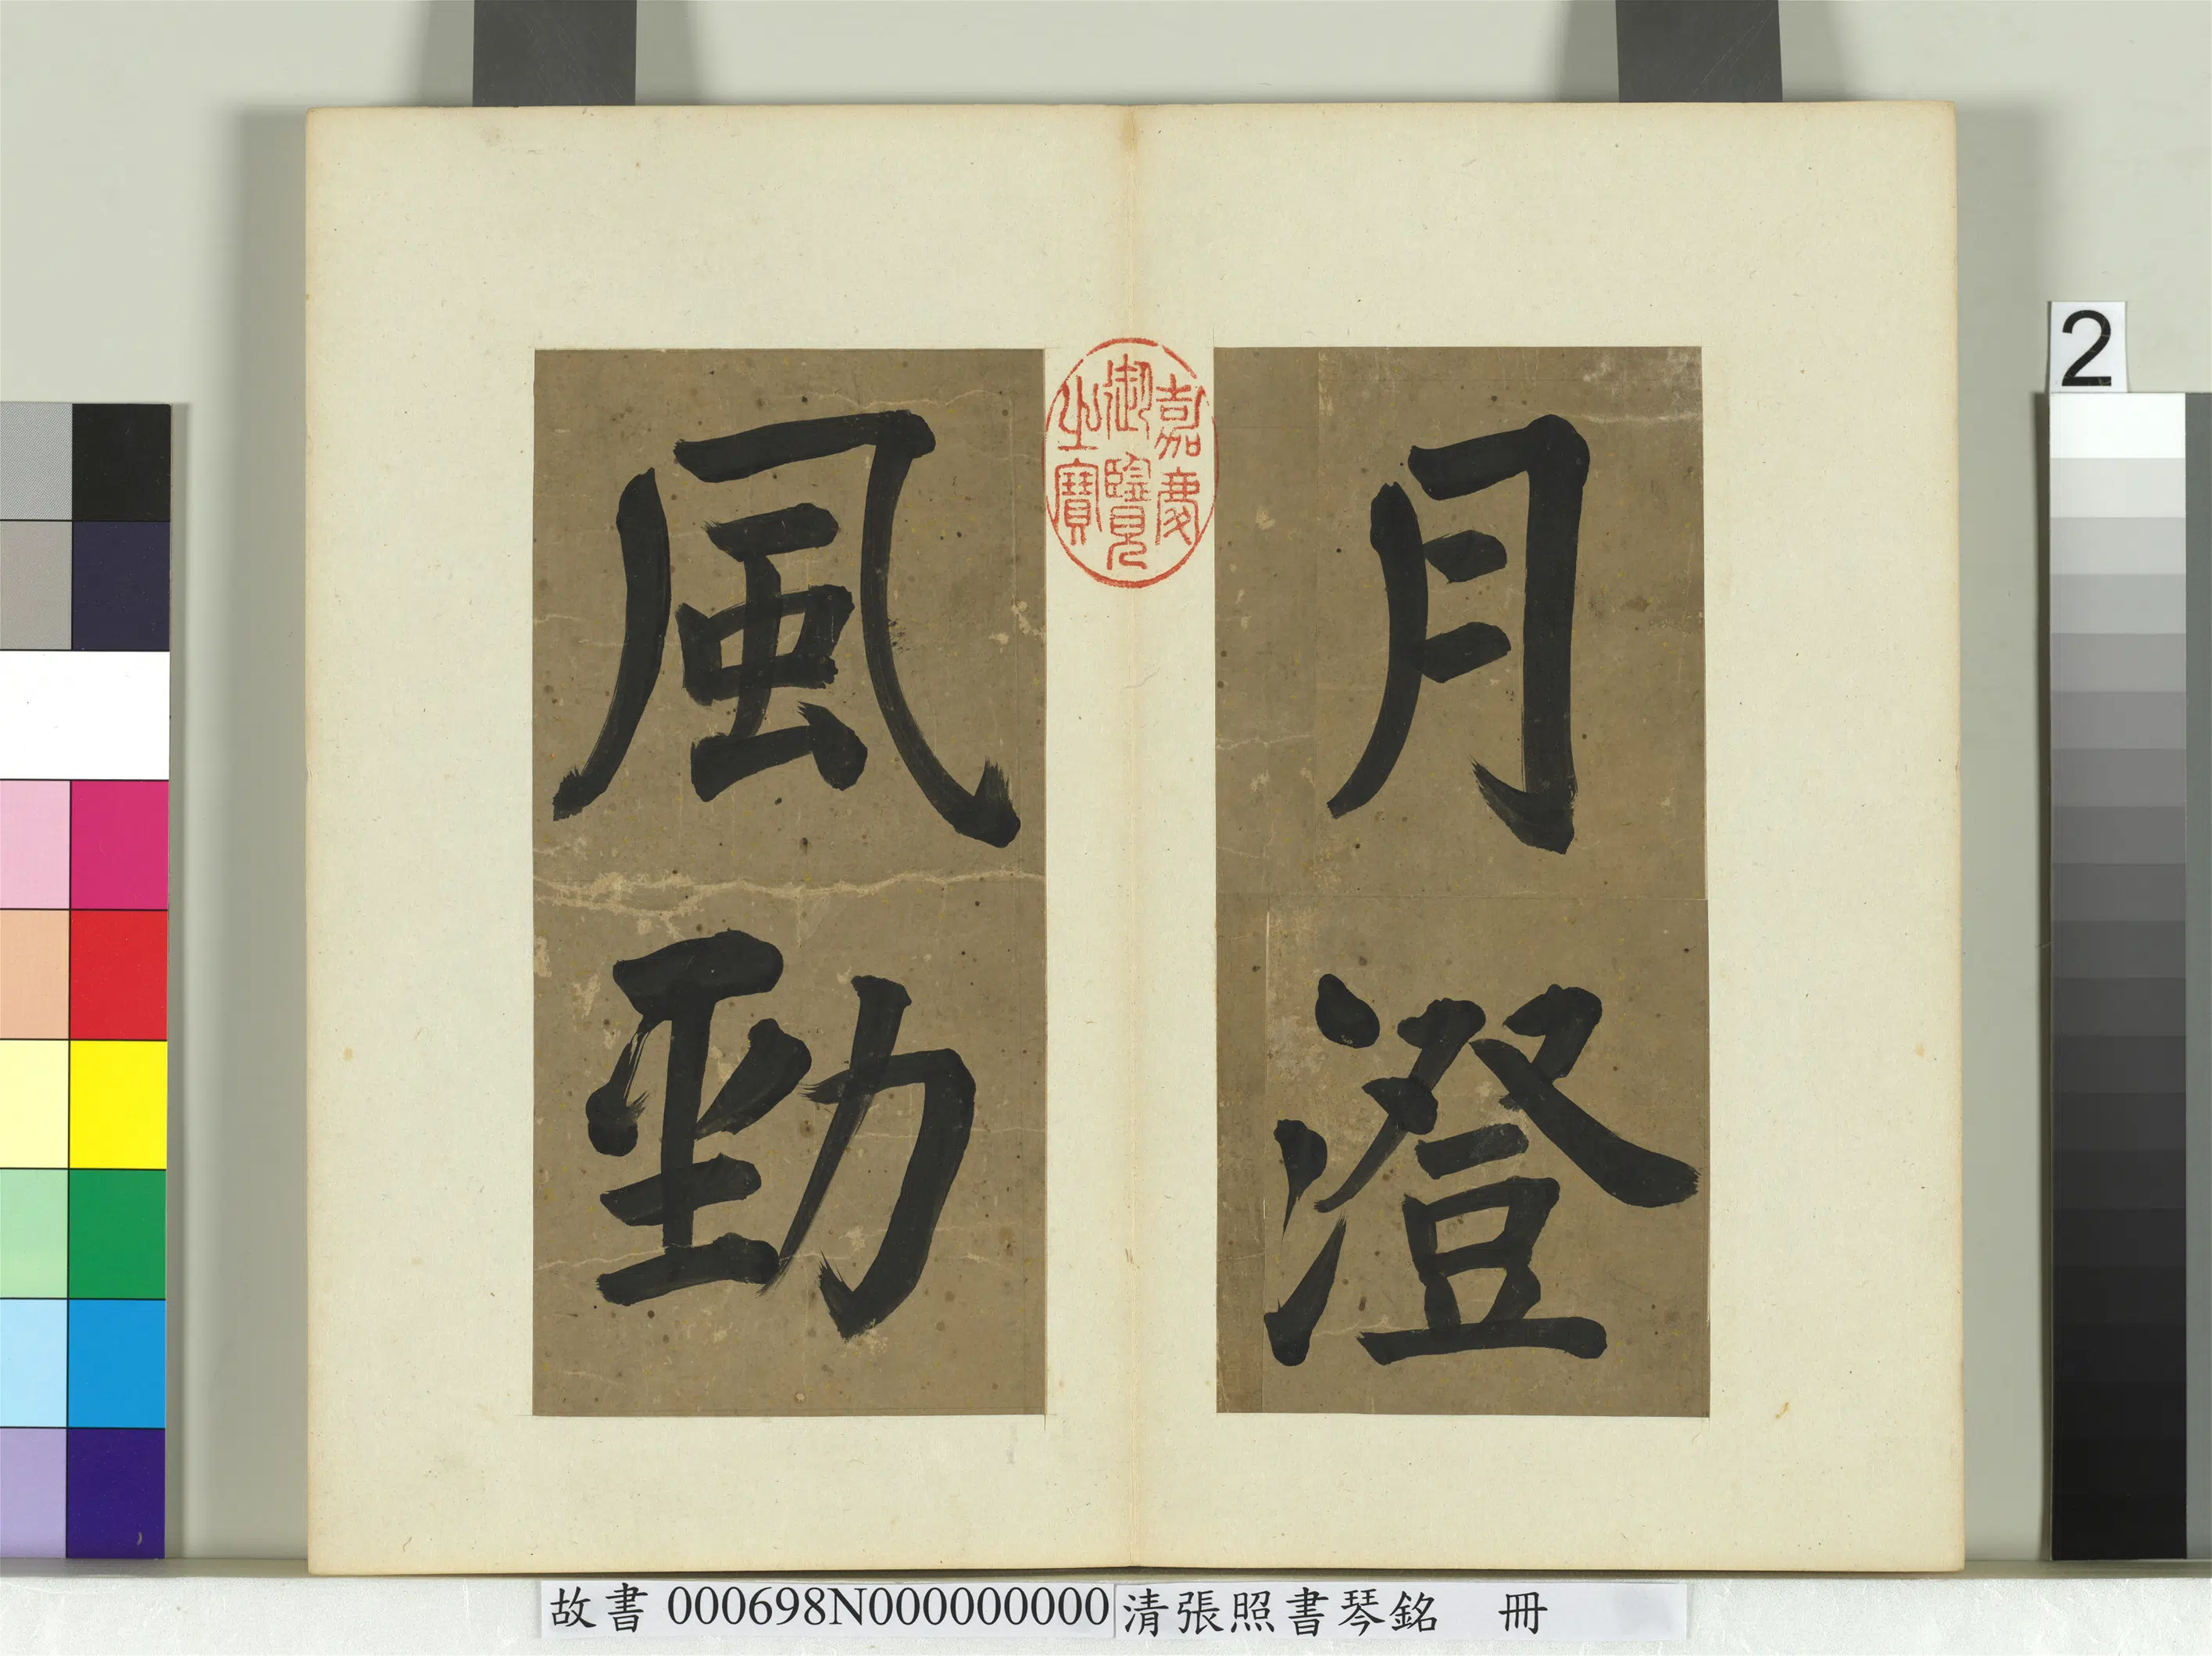 月澄
風勁
嘉慶
御覽
之寶
2
故書 000698N000000000 清張照書琴銘 冊